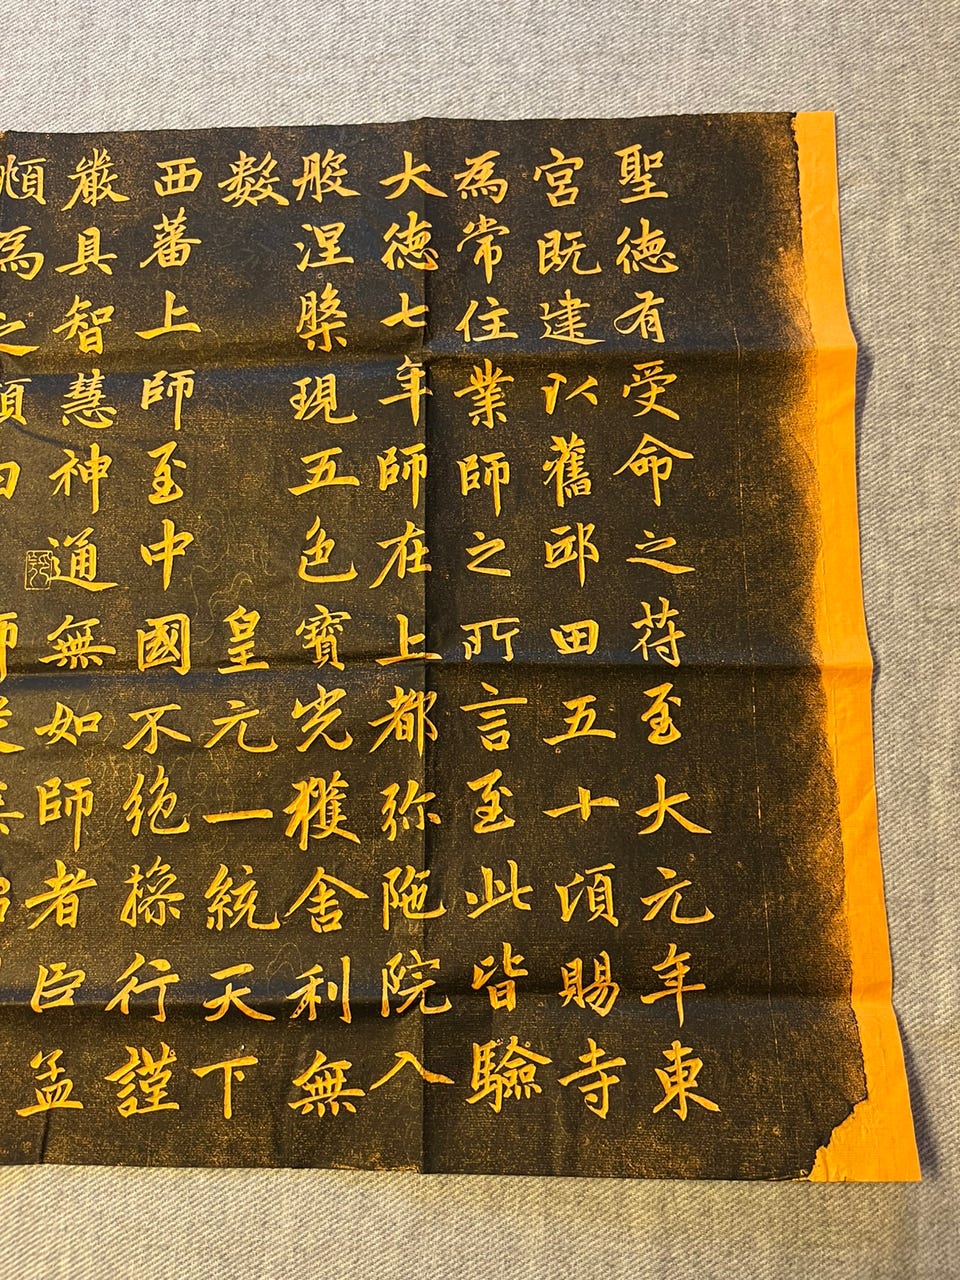 聖德有受命之荷至大元年東
宮既建以舊邸田五十頃賜寺
為常住業師之所言至此皆驗
大德七年師在上都弥陁院入
般涅槃現五色寶光獲舍利無
數皇元一統天下
西蕃上師至中國不絕操行謹
嚴具智慧神通無如師者臣孟
頫為之頌曰師